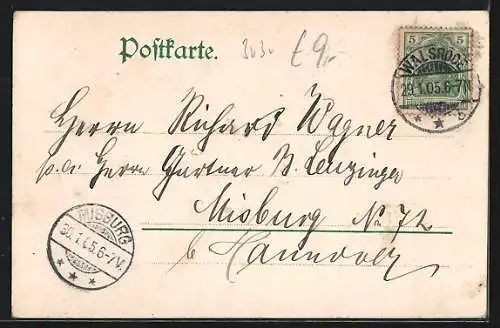 Postkarte.
3030 £9,-
5 5
WALSRODE
29.1.05.6-7N.
Herrn Richard Wagner
p. a. Herrn Gärtner H. Lenzinger
Misburg No 72
b Hannover
MISBURG
30.1.05.6-7V.